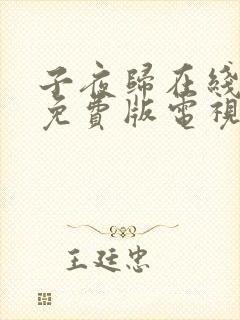 子夜歸在綫
免費版電視
王廷忠